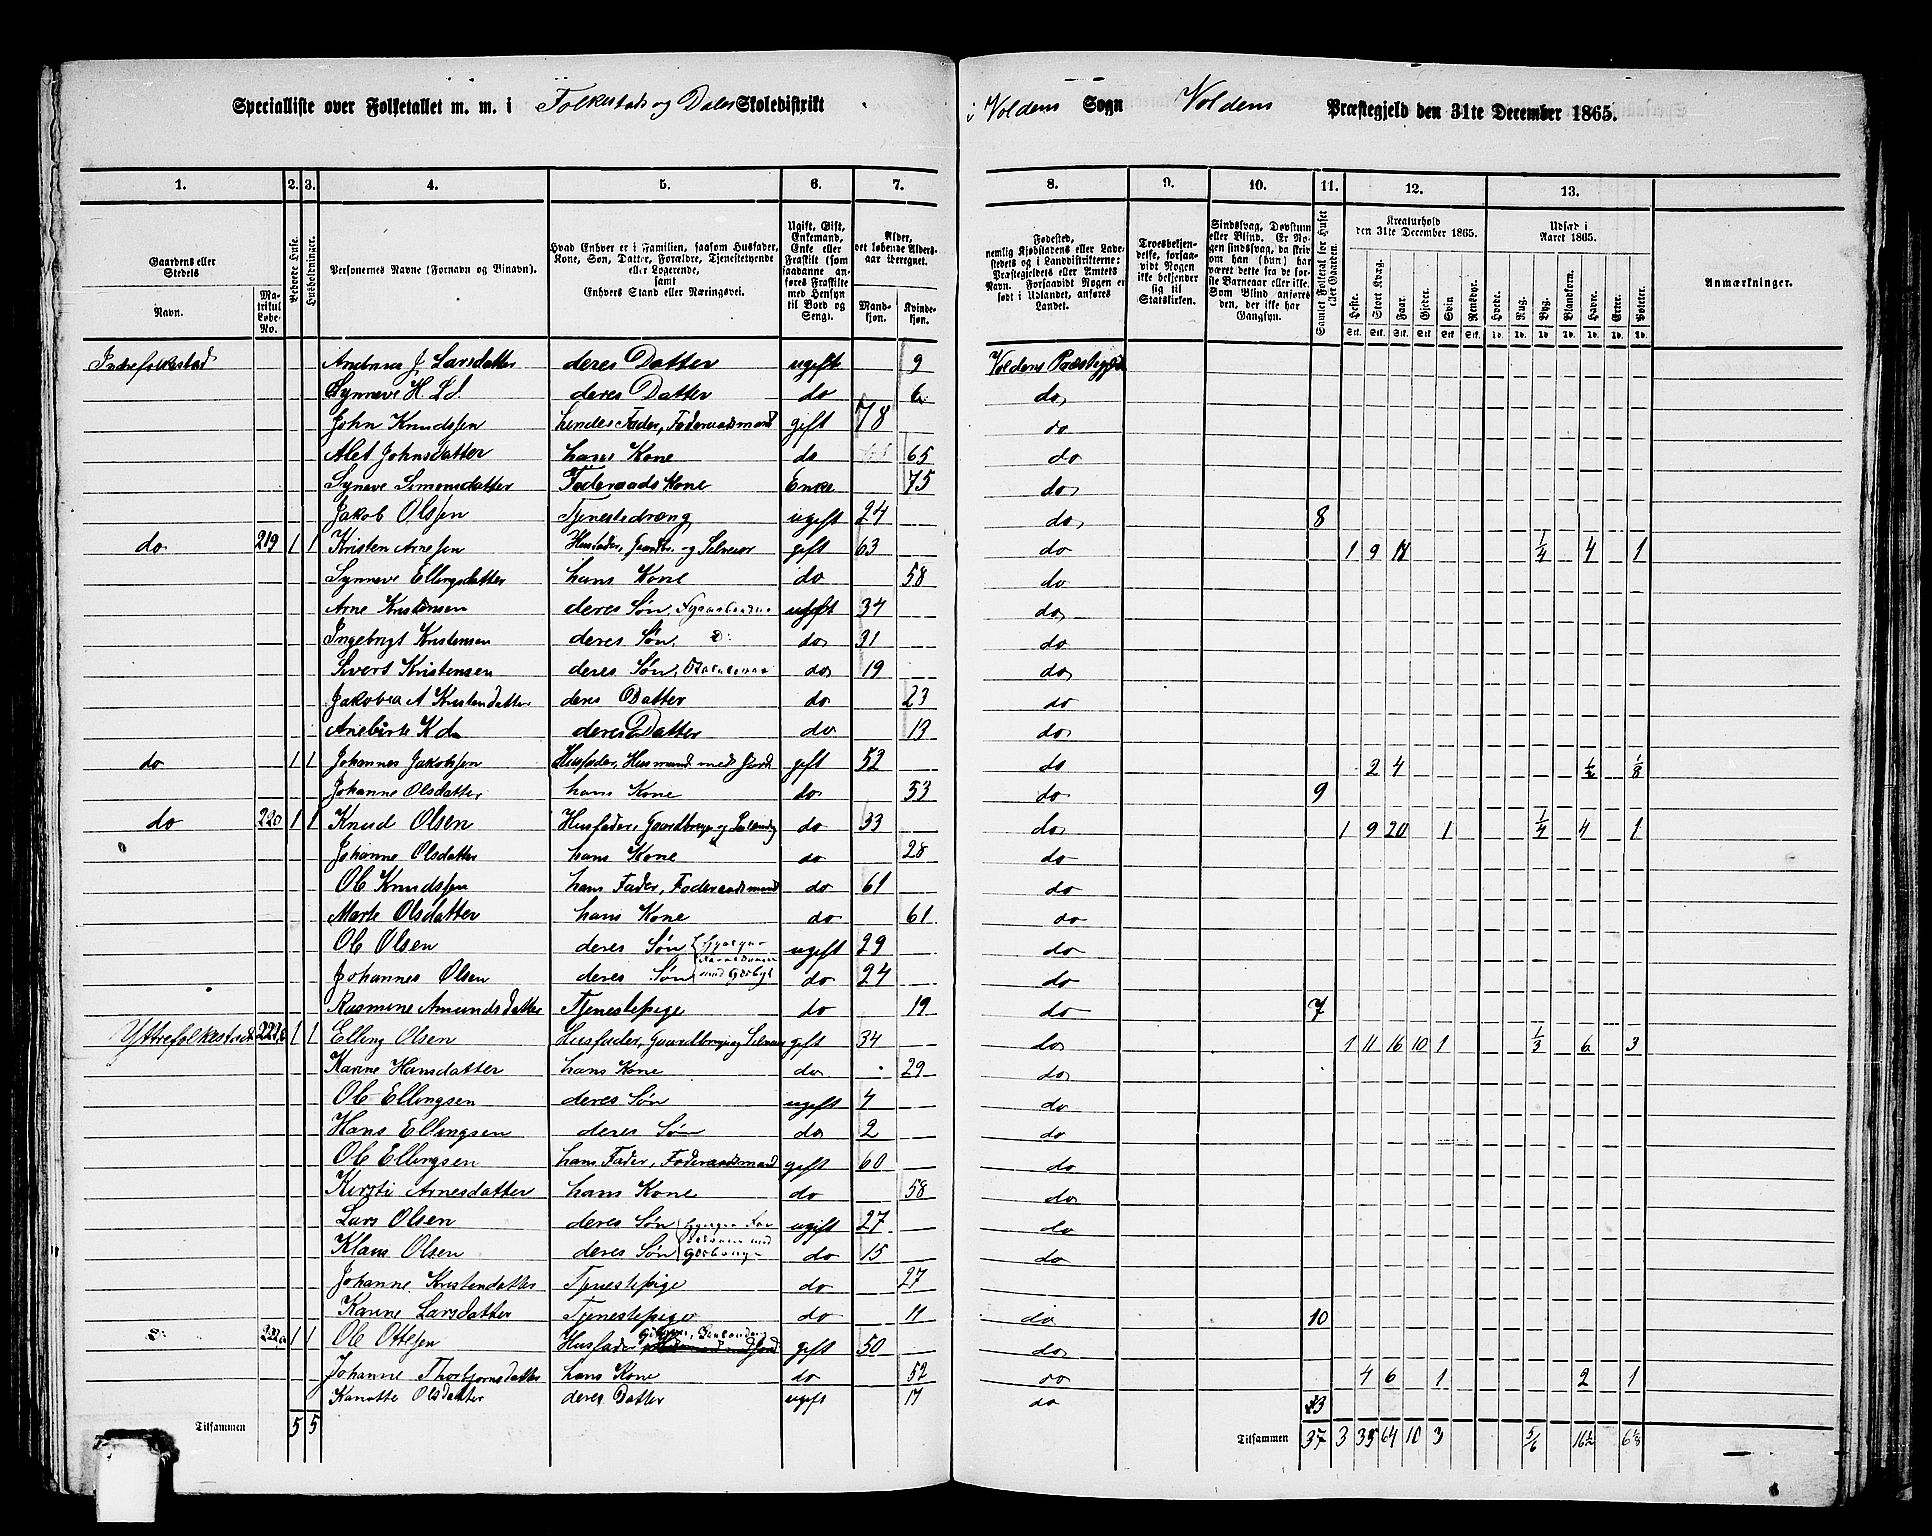 Specialliste over Folketallet m. m. i Folkestad og Dales Skoledistrikt i Voldens Sogn Voldens Præstegjeld den 31te December 1865.
1. 2. 3. 4. 5. 6. 7. 8. 9. 10. 11. 12. 13.
Gaardens eller Stedets
Navn.
Matrikul Løbe-No.
Beboede Huse.
Husholdninger.
Personernes Navne (Fornavn og Binavn).
Hvad Enhver er i Familien, saasom Husfader, Kone, Søn, Datter, Forældre, Tjenestetyende eller Logerende, samt Enhvers Stand eller Næringsvei.
Ugift, Gift, Enkemand, Enke eller Fraskilt (som saadanne anføres Fraskilte med Hensyn til Bord og Seng).
Alder, det løbende Aldersaar iberegnet.
Mandkjøn. Kvindekjøn.
Fødested, nemlig Kjøbstadens eller Ladestedets og i Landdistrikterne: Præstegjeldets eller Amtets Navn. Forsaavidt Nogen er født i Udlandet, anføres Landet.
Troesbekjendelse, forsaavidt Nogen ikke bekjender sig til Statskirken.
Sindssvag, Døvstum eller Blind. Er Nogen sindssvag, da skrives om han (hun) har været dette fra de første Barneaar eller ikke. Som Blind anføres den, der ikke har Gangsyn.
Samlet Folketal for Huset eller Gaarden.
Kreaturhold den 31te December 1865.
Heste. Stort Kvæg. Faar. Gjeder. Svin. Rensdyr.
Udsæd i Aaret 1865.
Hvede. Rug. Byg. Blandkorn. Havre. Erter. Poteter.
Anmærkninger.
Indrefolkestad J. Larsdatter deres Datter ugift 9 Voldens Præstegjeld
Synneve H Ld. deres Datter do 6 do
John Knudssen hendes Fader, Føderaadsmand gift 78 do
Alet Johnsdatter hans Kone do 65 do
Syneve Simensdatter Føderaads Kone Enke 75 do
Jakob Olssen Tjenestedreng ugift 24 do 8
do 219 1 1 Kristen Arnesen Husfader, Gaardbr. og Selveier gift 63 do 1 9 18 1/4 4 1
Synneve Ellingsdatter hans Kone do 58 do
Arne Kristensen deres Søn ugift 34 do
Ingebrigt Kristensen deres Søn, D: do 31 do
Sivert Kristensen deres Søn, do 19 do
Jakobea A Kristensdatter deres Datter do 23 do
Anebirte K d. deres Datter do 13 do
do 1 1 Johannes Jakobsen Husfader, Husmand med Jord gift 52 do 2 4 1/2 1/8
Johanne Olsdatter hans Kone do 53 do 9
do 220 1 1 Knud Olsen Husfader, Gaardbruger og do 33 do 1 9 20 1 1/4 4 1
Johanne Olsdatter hans Kone do 28 do
Ole Knudssen hans Fader, Føderaadsmand do 61 do
Marte Olsdatter hans Kone do 61 do
Ole Olsen deres Søn ugift 29 do
Johannes Olsen deres Søn do 24 do
Rasmine Amundsdatter Tjenestepige do 19 do 7
Yttrefolkestad 1 1 Elling Olsen Husfader, Gaardbruger og Selveier gift 34 do 1 11 16 10 1 1/3 6 3
Karine Hansdatter hans Kone do 29 do
Ole Ellingsen deres Søn ugift 4 do
Hans Ellingsen deres Søn do 2 do
Ole Ellingsen hans Fader, Føderaadsmand gift 60 do
Kirsti Arnesdatter hans Kone do 58 do
Lars Olsen deres Søn ugift 27 do
Klaus Olsen deres Søn do 15 do
Johanne Kristensdatter Tjenestepige do 27 do
Karine Larsdatter Tjenestepige do 11 do 10
1 1 Ole Ottesen Husfader gift 50 do
Johanne Thorbjørnsdatter hans Kone do 52 do 4 6 1 2 1
Kanutte Olsdatter deres Datter ugift 17 do 3
Tilsammen 5 5 Tilsammen 37 3 35 64 10 3 5/6 16 1/2 6 1/8